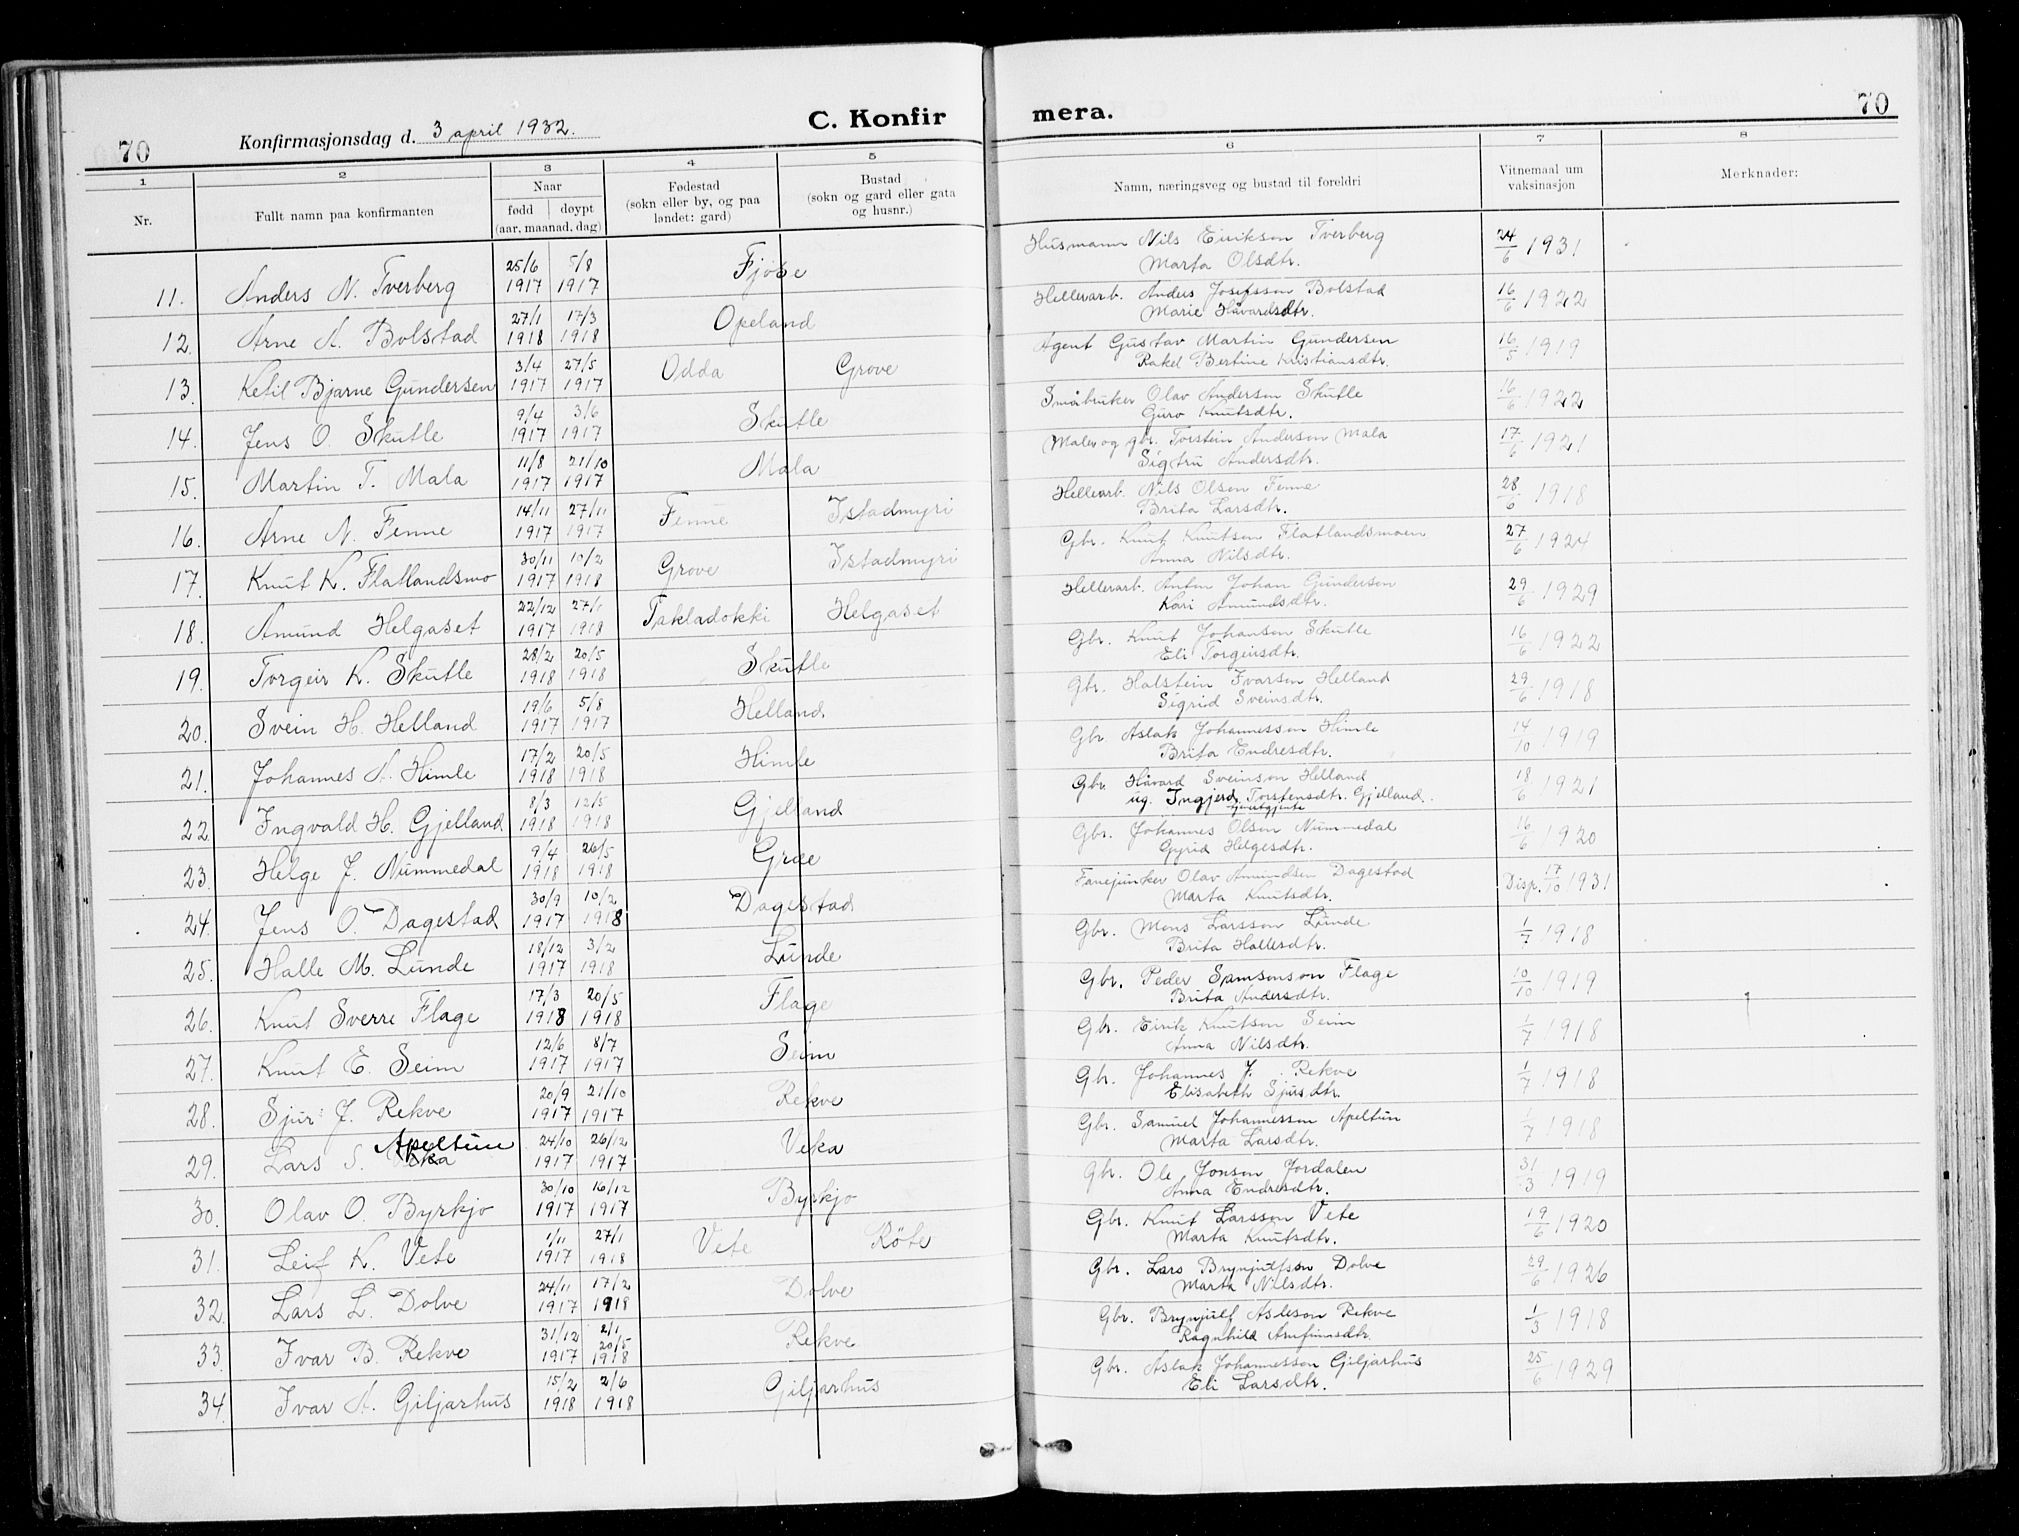 70 Konfirmasjonsdag d. 3 april 1932. C. Konfir
mera. 70
1 2 3 4 5 6 7 8
Nr. Fullt namn paa konfirmanten Naar fødd døypt (aar, maanad, dag) Fødestad (sokn eller by, og paa landet: gard) Bustad (sokn og gard eller gata og husnr.) Namn, næringsveg og bustad til foreldri Vitnemaal um vaksinasjon Merknader:
11. Anders N. Tverberg 25/6 1917 5/8 1917 Fjøse Husmann Nils Eirikson Tverberg 24/6 1931
Marta Olsdtr.
12. Arne A. Bolstad 27/1 1918 17/3 1918 Opeland Hellerarb. Anders Josefsson Bolstad 16/6 1922
Marie Håvardsdtr.
13. Ketil Bjarne Gundersen 3/4 1917 27/5 1917 Odda Grove Agent Gustav Martin Gundersen 16/5 1919
Rakel Bertine Kristiansdtr.
14. Jens O. Skutle 9/4 1917 3/6 1917 Skutle Småbruker Olav Anderson Skutle 16/6 1922
Guro Knutsdtr.
15. Martin T. Mala 11/8 1917 21/10 1917 Mala Maler og gbr. Torstein Anderson Mala 17/6 1921
Sigtru Andersdtr.
16. Arne N. Fenne 14/11 1917 27/11 1917 Fenne Istadmyri Hellearb. Nils Olson Fenne 28/6 1918
Brita Larsdtr.
17. Knut K. Flatlandsmo 30/11 1917 10/2 1918 Grove Istadmyri Gbr. Knut Knutson Flatlandsmoen 27/6 1924
Anna Nilsdtr.
18. Amund Helgaset 22/12 1917 27/1 1918 Takladokki Helgaset Hellerarb. Anton Johan Gundersen 29/6 1929
Kari Amundsdtr.
19. Torgeir K. Skutle 28/2 1918 20/5 1918 Skutle Gbr. Knut Johanson Skutle 16/6 1922
Eli Torgeirsdtr.
20. Svein H. Helland 19/6 1917 5/8 1917 Helland Gbr. Halstein Ivarson Helland 29/6 1918
Sigrid Sveinsdtr.
21. Johannes A. Himle 17/2 1918 20/5 1918 Himle Gbr. Aslak Johannesson Himle 14/10 1919
Brita Endresdtr.
22. Ingvald H. Gjelland 8/3 1918 12/5 1918 Gjelland Gbr. Håvard Sveinson Helland 18/6 1921
ug. Ingjerd Torstensdtr. Gjelland.
23. Helge J. Nummedal 9/4 1918 26/5 1918 Græe Gbr. Johannes Olson Nummedal 16/6 1920
Gyrid Helgesdtr.
24. Jens O. Dagestad 30/9 1917 10/2 1918 Dagestad Fanejunker Olav Amundsen Dagestad Disp. 17/10 1931
Marta Knutsdtr.
25. Halle M. Lunde 18/12 1917 3/2 1918 Lunde Gbr. Mons Larsson Lunde 1/7 1918
Brita Hallesdtr.
26. Knut Sverre Flage 17/3 1918 20/5 1918 Flage Gbr. Peder Samsonson Flage 10/10 1919
Brita Andersdtr.
27. Knut E. Seim 12/6 1917 8/7 1917 Seim Gbr. Eirik Knutson Seim 1/7 1918
Anna Nilsdtr.
28. Sjur J. Rekve 20/9 1917 21/10 1917 Rekve Gbr. Johannes J. Rekve 1/7 1918
Elisabeth Sjursdtr.
29. Lars S. Veka Apeltun 24/10 1917 26/12 1917 Veka Gbr. Samuel Johannesson Apeltun 1/7 1918
Marta Larsdtr.
30. Olav O. Byrkjo 30/10 1917 16/12 1917 Byrkjo Gbr. Ole Jonson Jordalen 31/3 1919
Anna Endresdtr.
31. Leif K. Vete 1/11 1917 27/1 1918 Vete Röte Gbr. Knut Larsson Vete 19/6 1920
Marta Knutsdtr.
32. Lars L. Dolve 24/11 1917 17/2 1918 Dolve Gbr. Lars Brynjulfson Dolve 29/6 1926
Marta Nilsdtr.
33. Ivar B. Rekve 31/12 1917 2/1 20/5 1918 Rekve Gbr. Brynjulf Asleson Rekve 1/3 1918
Ragnhild Arnfinnsdtr.
34. Ivar A. Giljarhus 15/2 1918 2/6 1918 Giljarhus Gbr. Aslak Johannesson Giljarhus 25/6 1929
Eli Larsdtr.